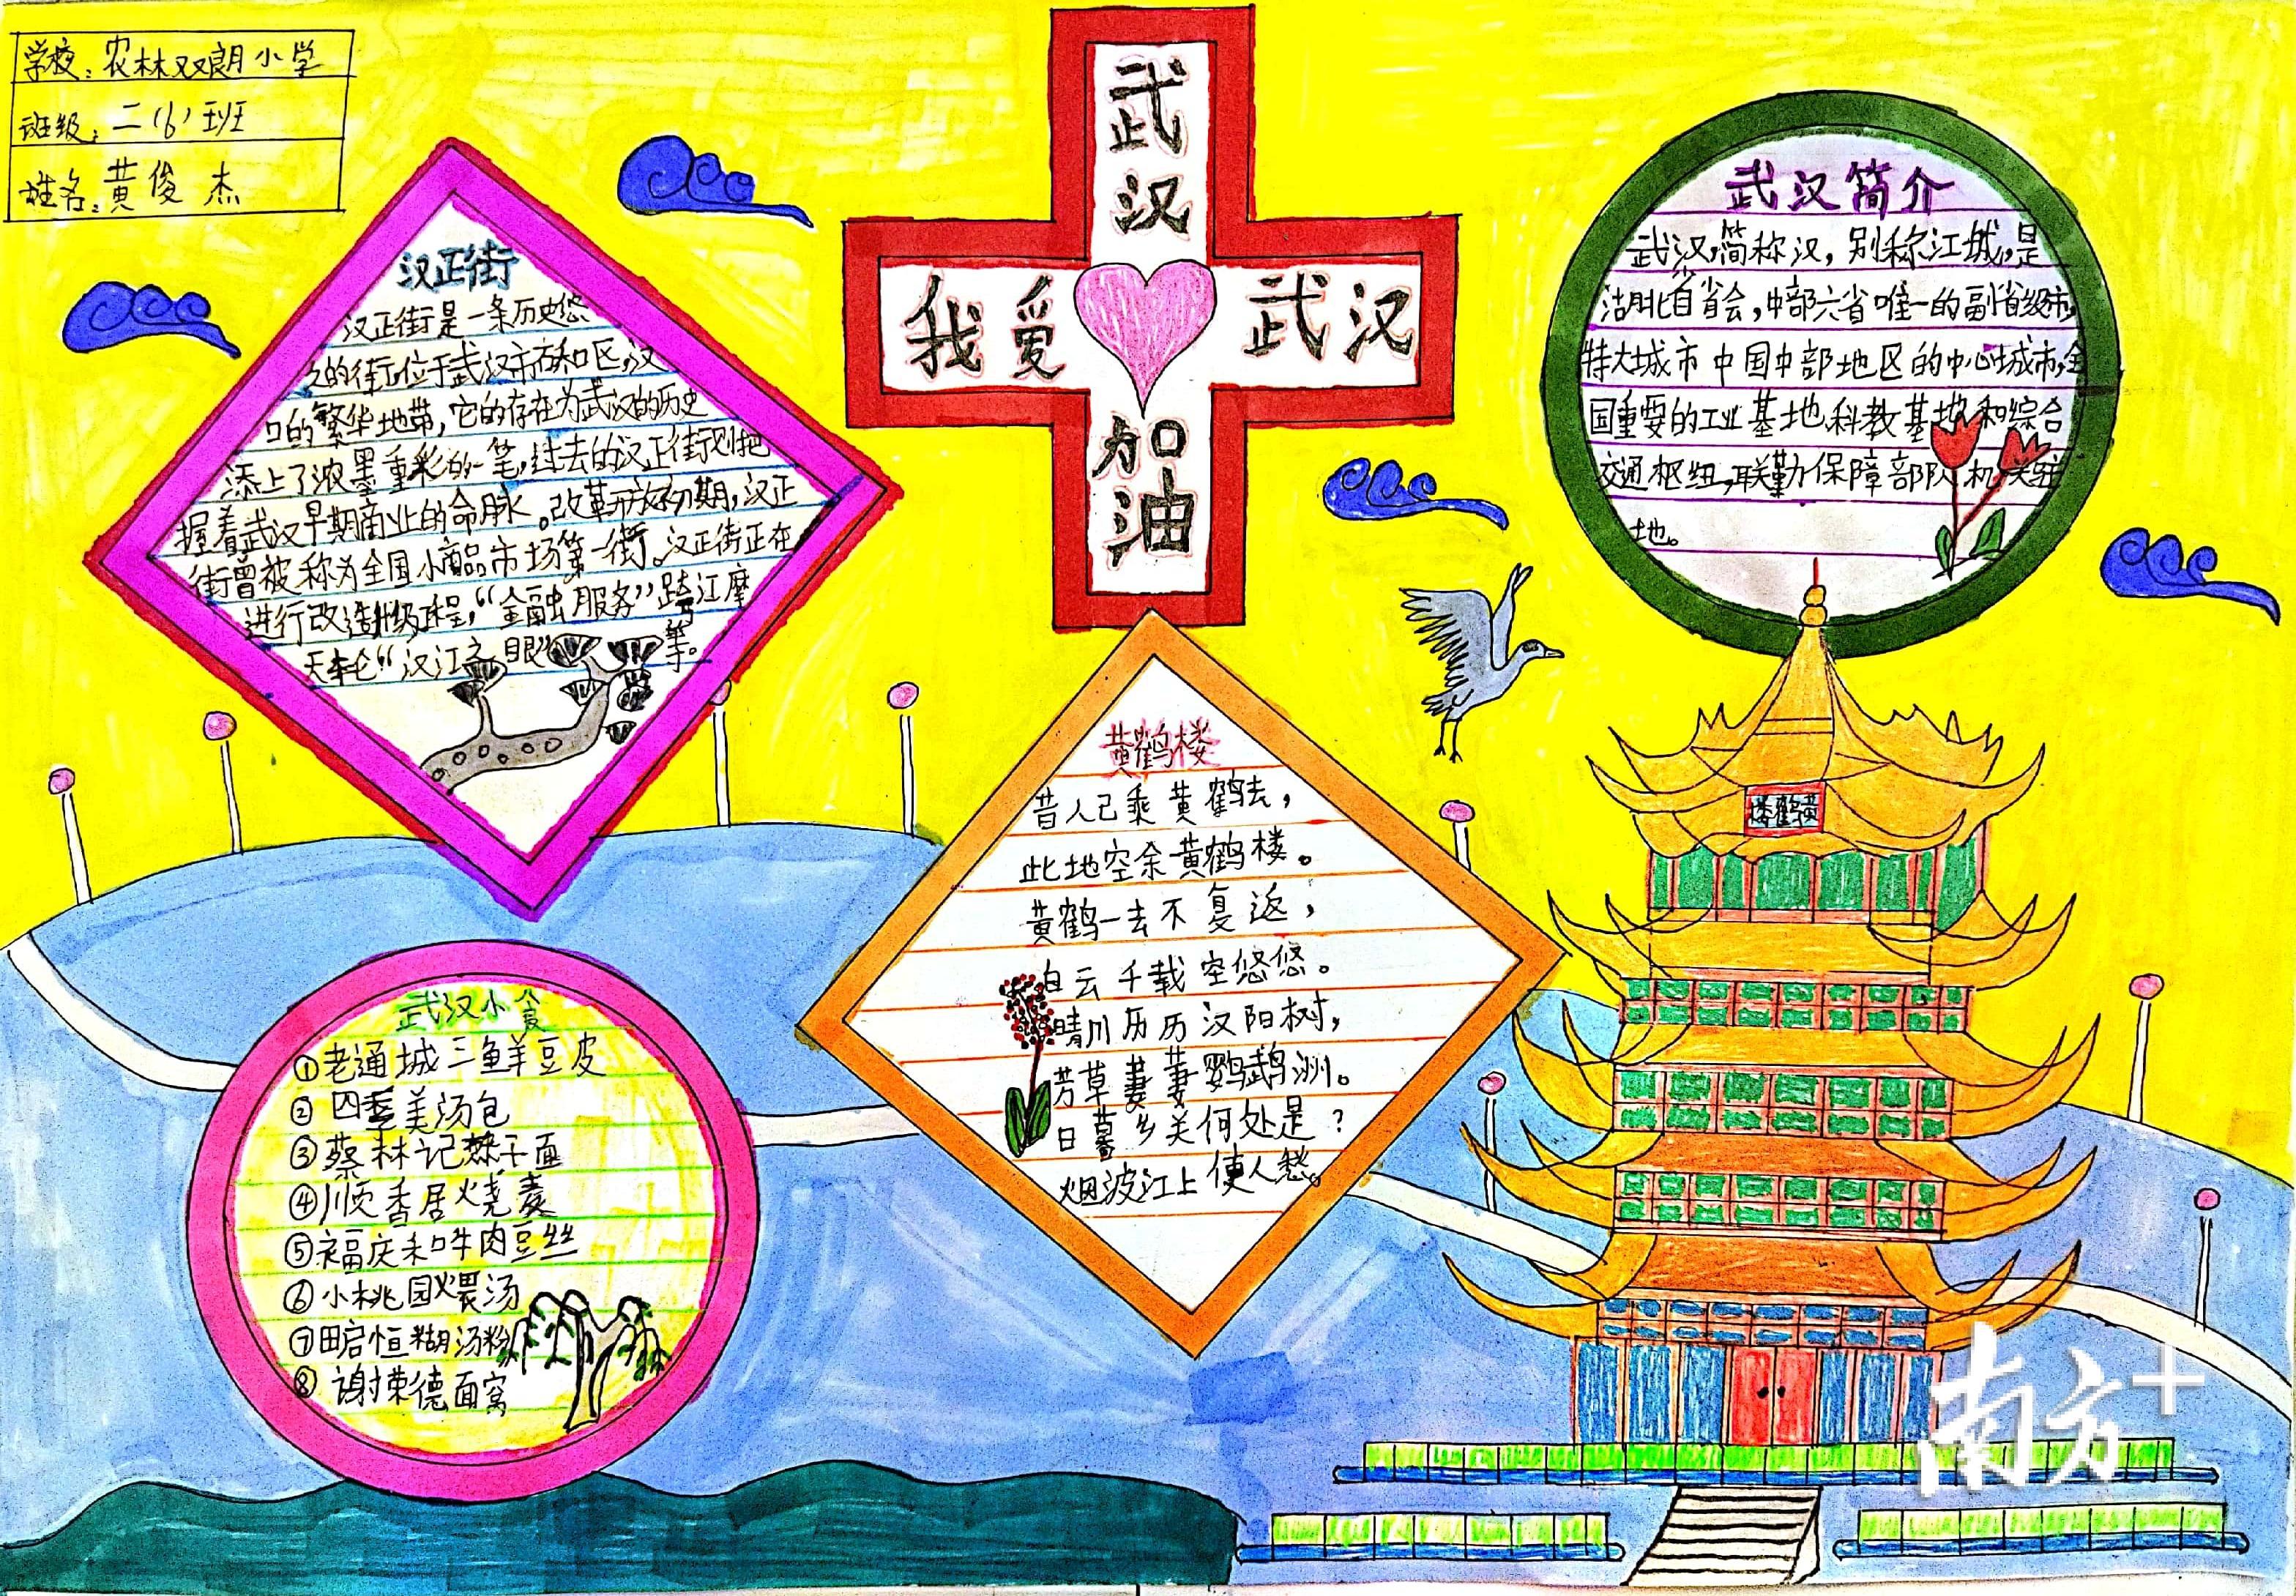 学校：农林双朗小学
班级：二（6）班
姓名：黄俊杰
武汉
我爱
武汉
加油
汉正街
汉正街是一条历史悠
久的街，位于武汉市硚和区，汉
口的繁华地带，它的存在为武汉的历史
添上了浓墨重彩的一笔，过去的汉正街则把
握着武汉早期商业的命脉。改革开放初期，汉正
街曾被称为全国小商品市场第一街。汉正街正在
进行改造升级工程，“金融服务”跨江摩
天轮“汉江之眼”等。
武汉简介
武汉，简称汉，别称江城，是
湖北省省会，中部六省唯一的副省级市，
特大城市中国中部地区的中心城市，全
国重要的工业基地、科教基地和综合
交通枢纽，联勤保障部队机关驻
地。
黄鹤楼
昔人已乘黄鹤去，
此地空余黄鹤楼。
黄鹤一去不复返，
白云千载空悠悠。
晴川历历汉阳树，
芳草萋萋鹦鹉洲。
日暮乡关何处是？
烟波江上使人愁。
黄鹤楼
武汉小食
①老通城三鲜豆皮
②四季美汤包
③蔡林记热干面
④顺香居烧麦
⑤福庆和牛肉豆丝
⑥小桃园煨汤
⑦田启恒糊汤粉
⑧谢荣德面窝
南方+